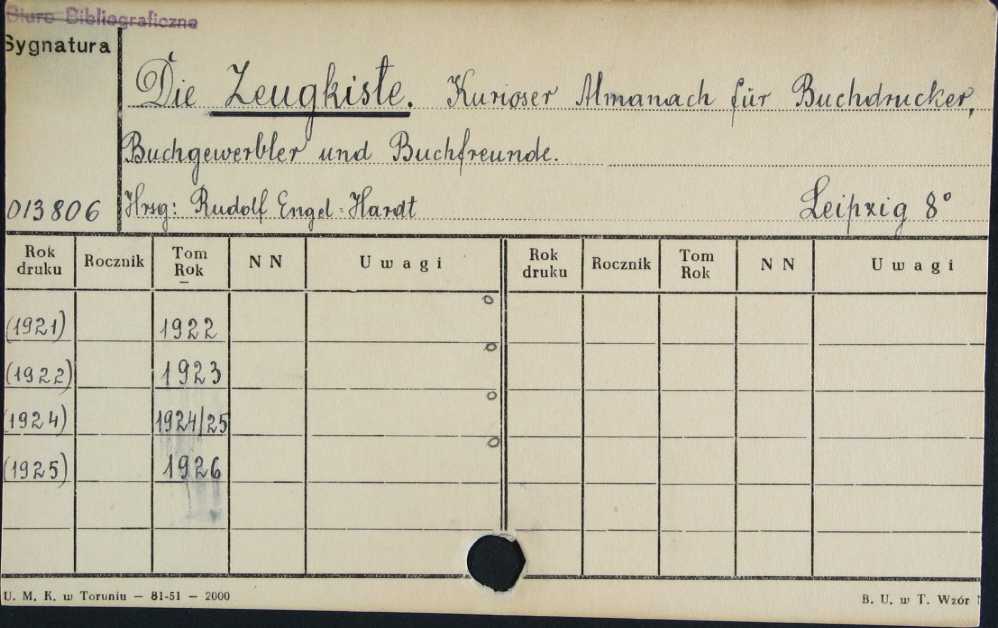 Biuro Bibliograficzne
Sygnatura
Die Zeugkiste. Kurioser Almanach für Buchdrucker,
Buchgewerbler und Buchfreunde.
013806 Hrsg: Rudolf Engel-Hardt Leipzig 8°
Rok druku Rocznik Tom Rok NN Uwagi Rok druku Rocznik Tom Rok NN Uwagi
(1921) 1922
(1922) 1923
(1924) 1924/25
(1925) 1926
U. M. K. w Toruniu — 81-51 — 2000 B. U. w T. Wzór